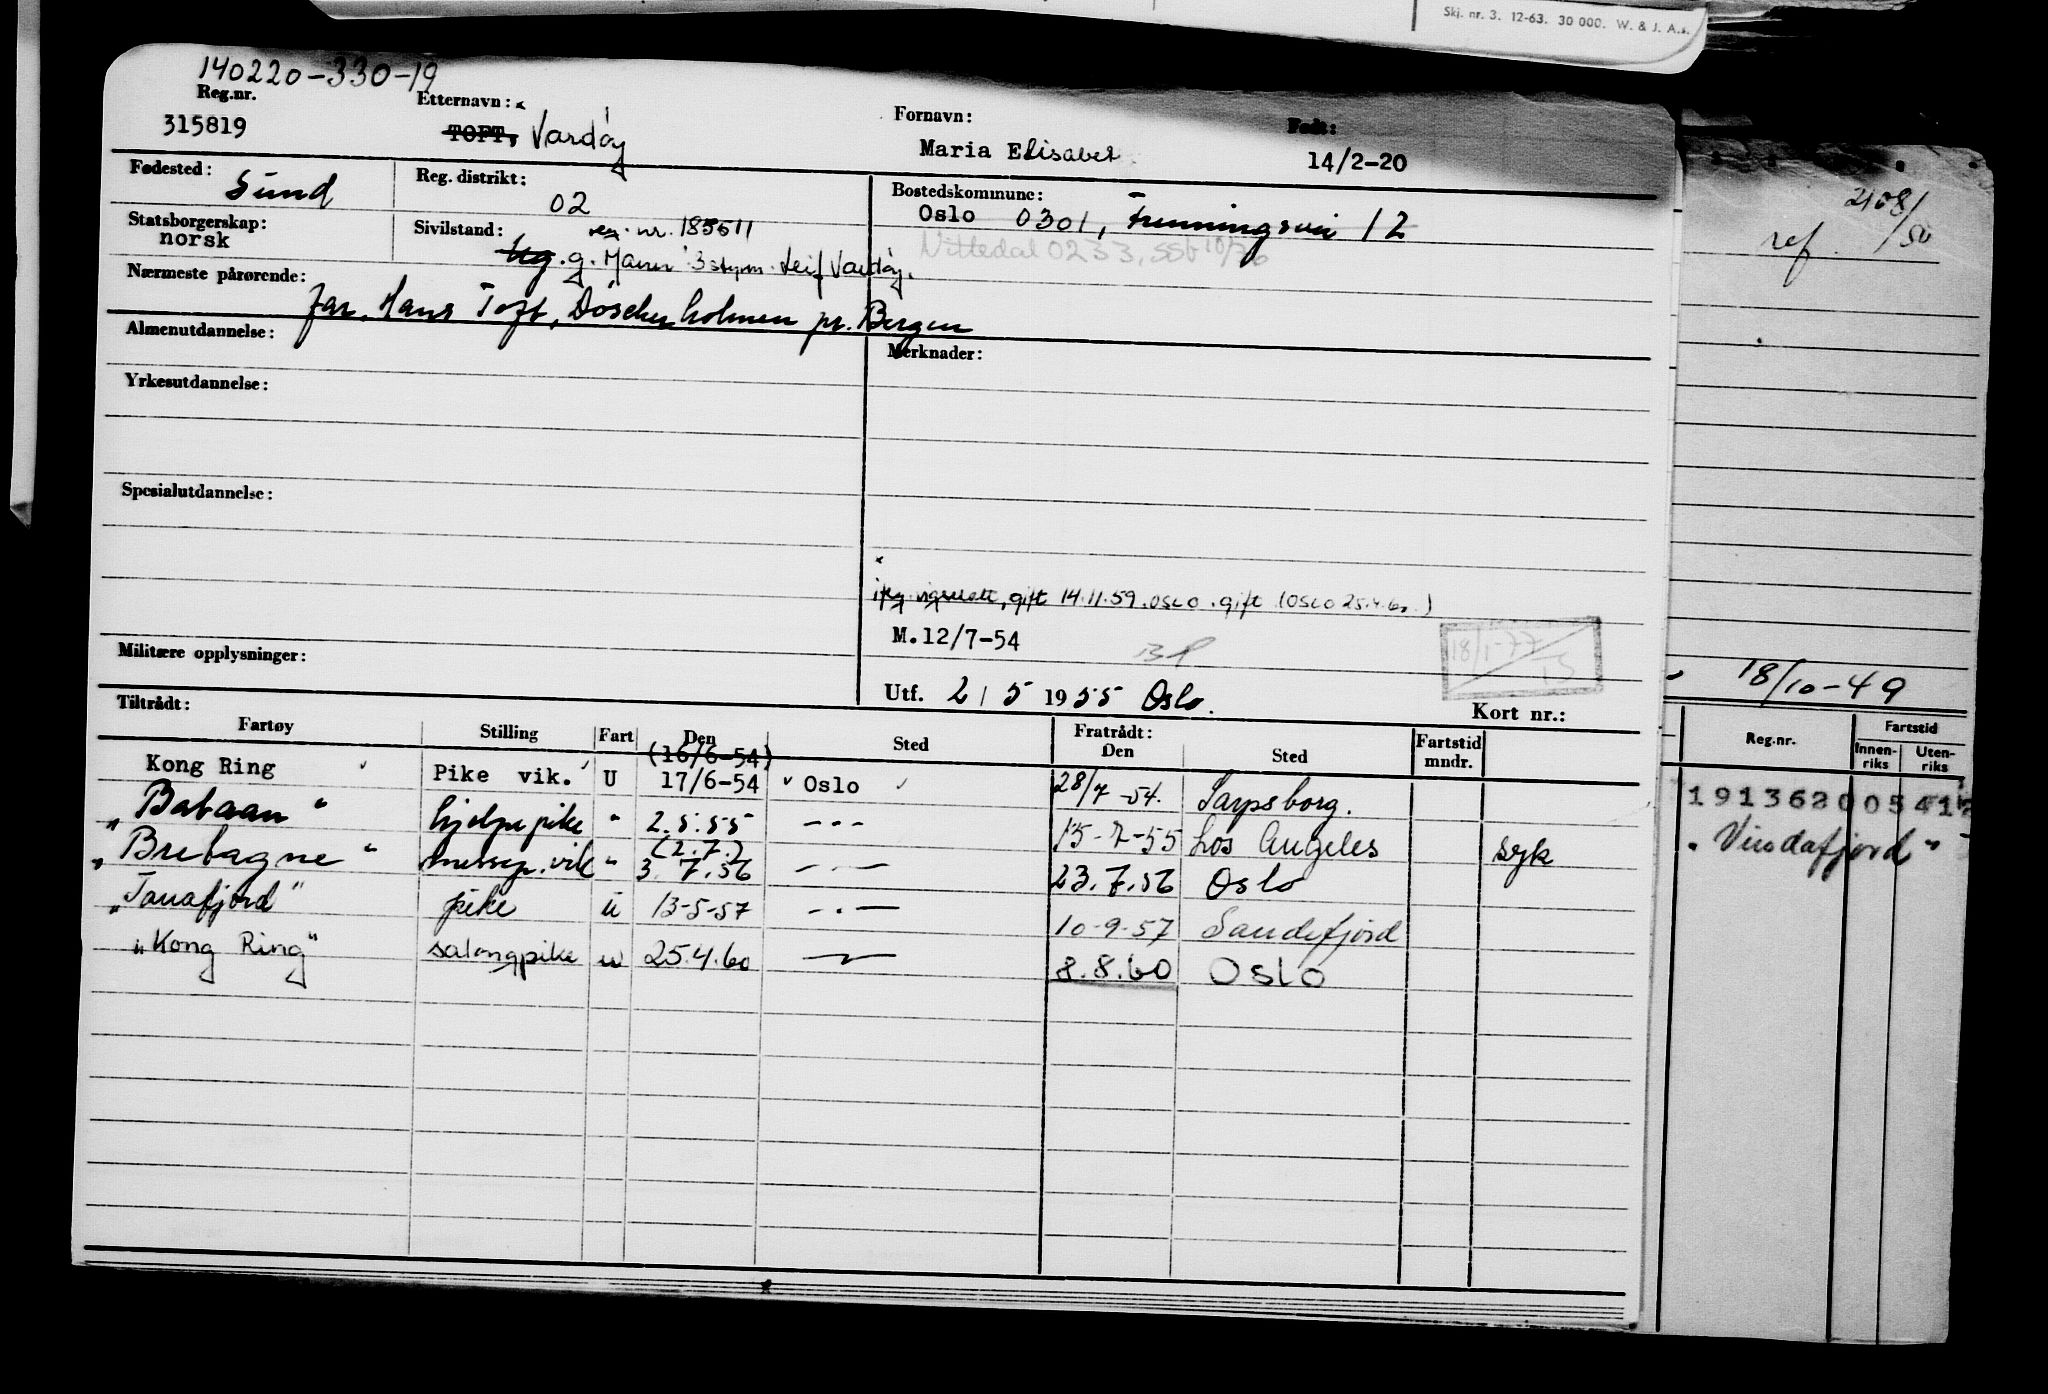 Skj. nr. 3. 12-63. 30 000. W. & J. A.s.
140220-330-19
Reg.nr. Etternavn: x Fornavn: Født:
315819 TOFT, Vardøy Maria Elisabet 14/2-20
Fødested: Sund Reg. distrikt: 02 Bostedskommune:
Oslo 0301, 12
Nittedal 0233, SSB 10/76
Statsborgerskap: norsk Sivilstand: reg. nr. 185511
Ug. g. Mann: 3 styrm. Leif Vardøy.
Nærmeste pårørende: far, Hans Toft, pr. Bergen
Almenutdannelse: Merknader:
Yrkesutdannelse:
Spesialutdannelse:
x
iflg. vigselatt, gift 14.11.59. Oslo. gift (Oslo 25.4.60.)
M.12/7-54
18/1-77
Militære opplysninger:
Utf. 2 / 5 1955 Oslo.
Kort nr.:
Tiltrådt: Fratrådt:
Fartøy Stilling Fart Den Sted Den Sted Fartstid mndr.
(16/6-54)
Kong Ring Pike vik. U 17/6-54 Oslo 28/7-54. Sarpsborg.
"Bataan" hjelpepike " 2.5.55 --- 15-7-55 Los Angeles syk
(2.7.)
"Bretagne" messep. vik " 3.7.56 -"- 23.7.56 Oslo
"Tanafjord" pike u 13-5-57 -"- 10-9-57 Sandefjord
"Kong Ring" salongpike u 25.4.60 -"- 8.8.60 Oslo
ref.
18/10-49
Reg.nr. Fartstid
Innen-riks Uten-riks
"Vindafjord"